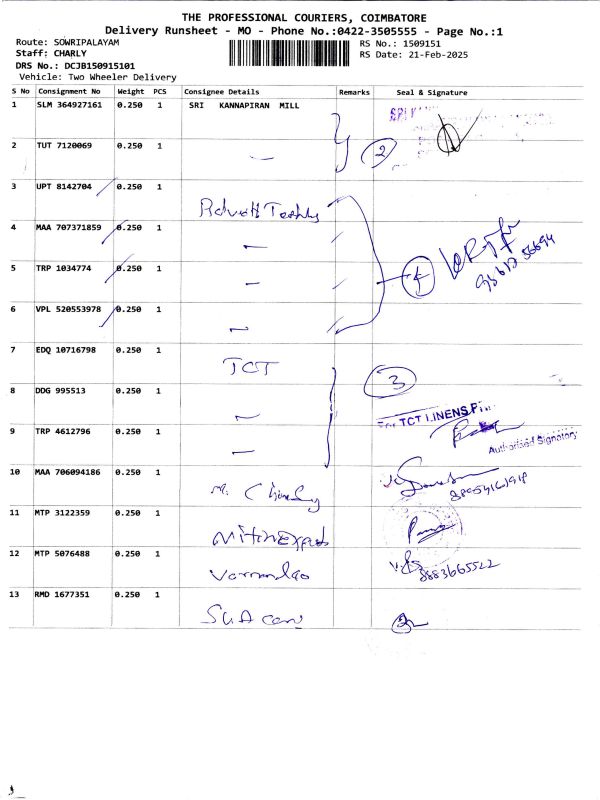 THE PROFESSIONAL COURIERS, COIMBATORE
Delivery Runsheet - MO - Phone No.:0422-3505555 - Page No.:1
Route: SOWRIPALAYAM
Staff: CHARLY
DRS No.: DCJB150915101
Vehicle: Two Wheeler Delivery
RS No.: 1509151
RS Date: 21-Feb-2025
S No Consignment No Weight PCS Consignee Details Remarks Seal & Signature
1 SLM 364927161 0.250 1 SRI KANNAPIRAN MILL
2 TUT 7120069 0.250 1 2
3 UPT 8142704 0.250 1
4 MAA 707371859 0.250 1
5 TRP 1034774 0.250 1 4
6 VPL 520553978 0.250 1
7 EDQ 10716798 0.250 1 TCT 3
8 DDG 995513 0.250 1
For TCT LINENS
9 TRP 4612796 0.250 1
Authorised Signatory
10 MAA 706094186 0.250 1
11 MTP 3122359 0.250 1
12 MTP 5076488 0.250 1 8883665522
13 RMD 1677351 0.250 1